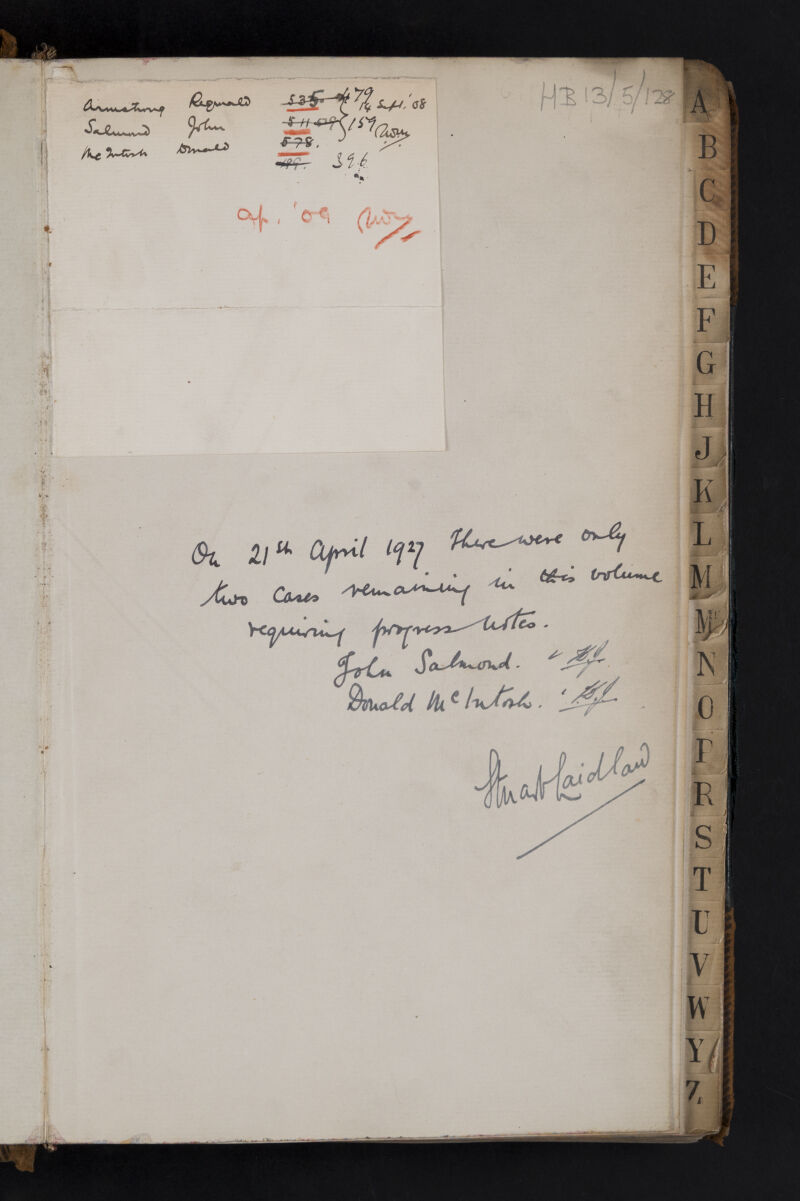 HB 13/5/128
Armstrong Reginald 535 479 14 Sept. '08
Salmond John 511 519 159
McIntosh Donald 578.
396
Ap. '09
On 21st April 1927 there were only
two cases remaining in this volume
requiring progress notes.
John Salmond.
Donald McIntosh.
Stuart Laidlaw
A
B
C
D
E
F
G
H
J
K
L
M
Mc
N
O
P
R
S
T
U
V
W
Y
Z